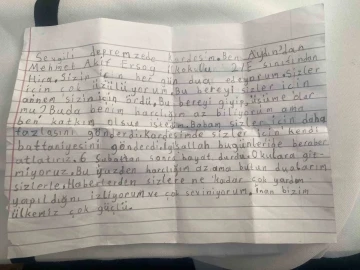 Sevgili depremzede kardeşim. Ben Aydın'dan
Mehmet Akif Ersoy İlkokulu 2/E sınıfından
Mira. Sizin için her gün dua ediyorum. Sizler
için çok üzülüyorum. Bu bereyi sizler için
annem sizin için ördü. Bu bereyi giyip, üzüme olur
mu? Burda benim harçlığım var az biliyorum ama
ben katkım olsun istedim. Babam sizler için daha
fazlasını gönderdi. Kardeşimde sizler için kendi
battaniyesini gönderdi. İnşallah bugünleride beraber
atlatırız. 6 Şubattan sonra hayat durdu. Okulara git-
miyoruz. Bu yüzden harçlığım az ama bütün dualarım
sizlerle. Haberlerden sizlere ne kadar çok yardım
yapıldığını izliyorum ve çok seviniyorum. İnan bizim
ülkemiz çok güçlü.